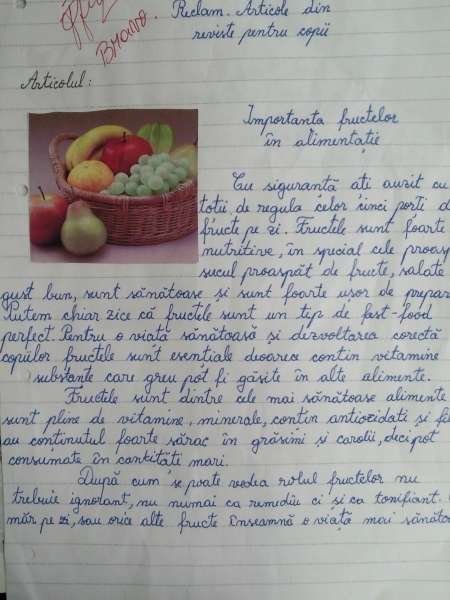 Bravo.
Reclam. Articole din
reviste pentru copii
Articolul:
Importanta fructelor
în alimentație
Cu siguranță ați auzit cu
totii de regula celor cinci porți d
fructe pe zi. Fructele sunt foarte
nutritive, în special cele proasp
sucul proaspăt de fructe, salate
gust bun, sunt sănătoase și sunt foarte ușor de prepar
Putem chiar zice că fructele sunt un tip de fast-food
perfect. Pentru o viață sănătoasă și dezvoltarea corectă
copiilor fructele sunt esentiale deoarece contin vitamine
substanțe care greu pot fi găsite în alte alimente.
Fructele sunt dintre cele mai sănătoase alimente
sunt pline de vitamine, minerale, conțin antioxidati și fi
au conținutul foarte sărac în grăsimi și calorii, deci pot
consumate în cantități mari.
După cum se poate vedea rolul fructelor nu
trebuie ignorant, nu numai ca remediu ci și ca tonifiant.
măr pe zi, sau orice alte fructe înseamnă o viață mai sănăto